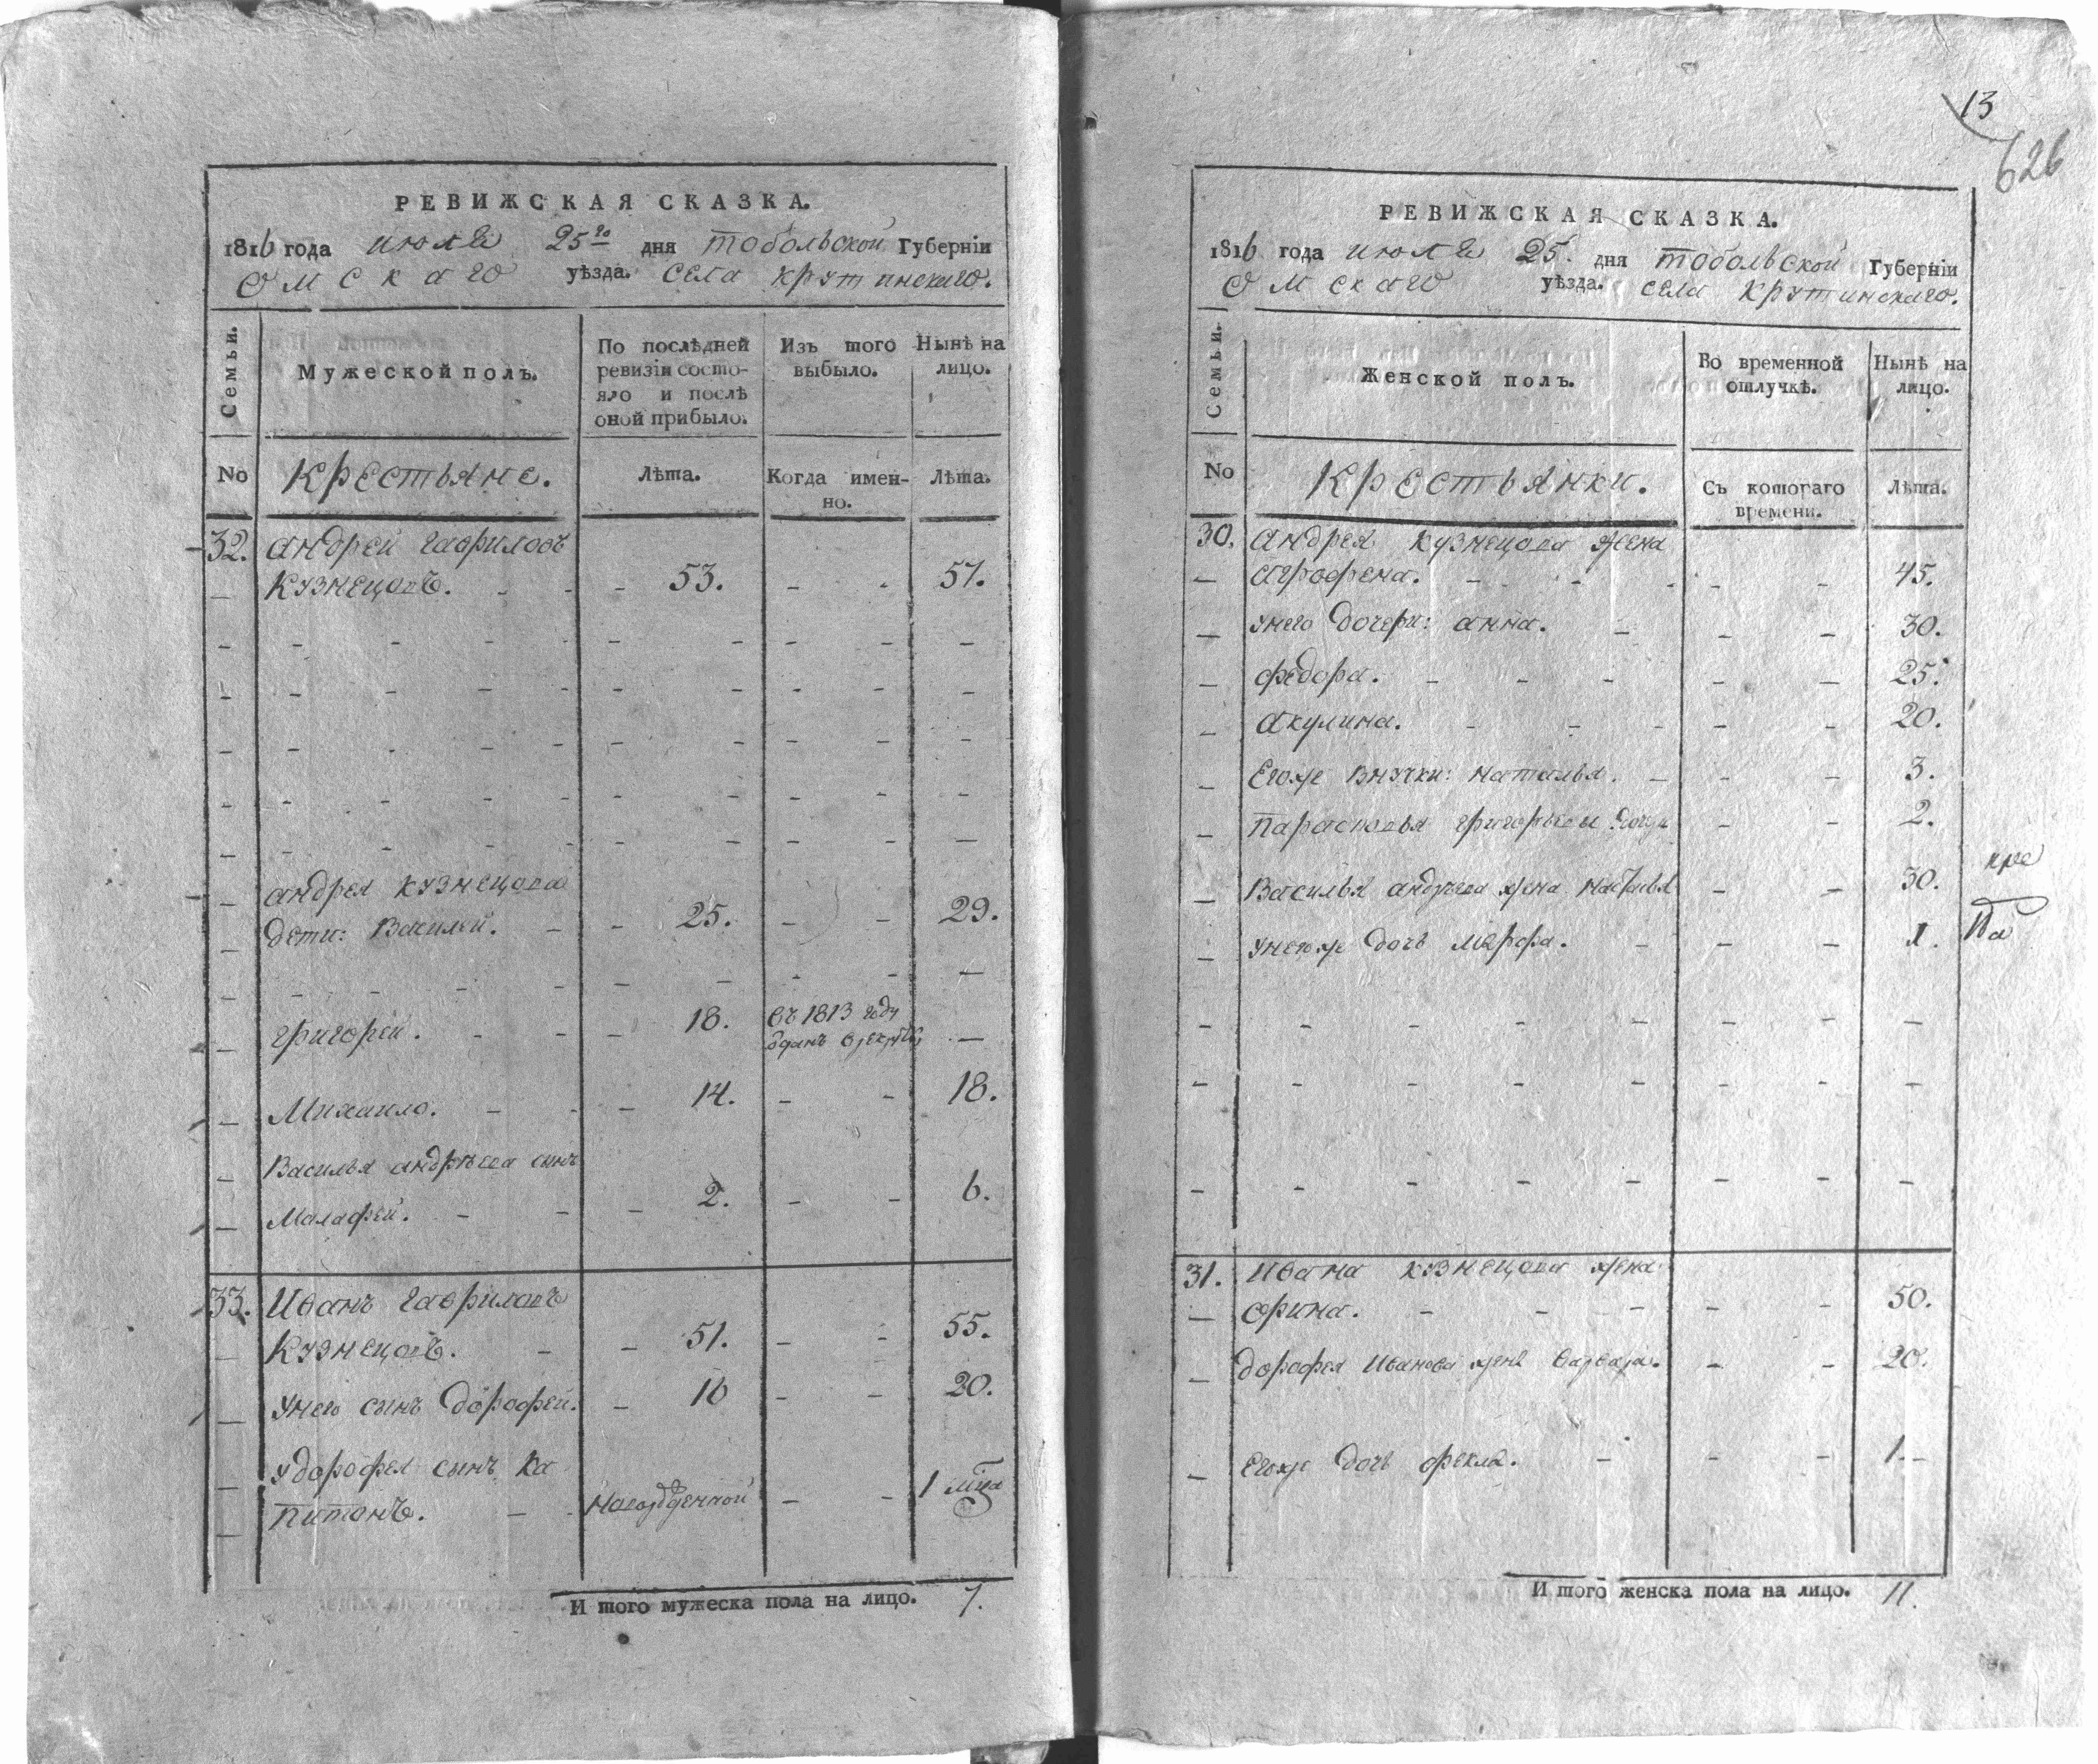 РЕВИЖСКАЯ СКАЗКА.
1816 года июля 25го дня тобольской Губерніи
Омскаго уѣзда. села крутинскаго.
Семьи.
Мужеской полъ.
По послѣдней
ревизіи состо-
яло и послѣ
оной прибыло.
Изъ того
выбыло.
Нынѣ на
лицо.
No
Крестьяне.
Лѣта.
Когда имен-
но.
Лѣта.
32. андрей гавриловъ
Кузнецовъ. 53. 57.
андрея кузнецова
дети: Василей. 25. 29.
григорей. 18. въ 1813 году
отданъ в рекруты
Михаило. 14. 18.
Василья андрѣева сынъ
Малафей. 2. 6.
33. Иванъ гавриловъ
Кузнецовъ. 51. 55.
унего сынъ дорофей. 16 20.
удорофея сынъ Ка
питонъ. новорожденной 1 мца
И того мужеска пола на лицо. 7.
13
626
РЕВИЖСКАЯ СКАЗКА.
1816 года июля 25. дня тобольской Губерніи
Омскаго уѣзда. села крутинскаго.
Семьи.
Женской полъ.
Во временной
отлучкѣ.
Нынѣ на
лицо.
No
Крестьянки.
Съ котораго
времени.
Лѣта.
30. андрея кузнецова жена
агрофена. 45.
унего дочери: анна. 30.
федора. 25.
акулина. 20.
Егоже внучки: наталья. 3.
парасковья григорьевы дочери 2.
Василья андреева жена настасья 30.
унегоже дочь марфа. 1.
31. ивана кузнецова жена
орина. 50.
дорофея иванова жена варвара. 20.
Егоже дочь фекла. 1
И того женска пола на лицо. 11.